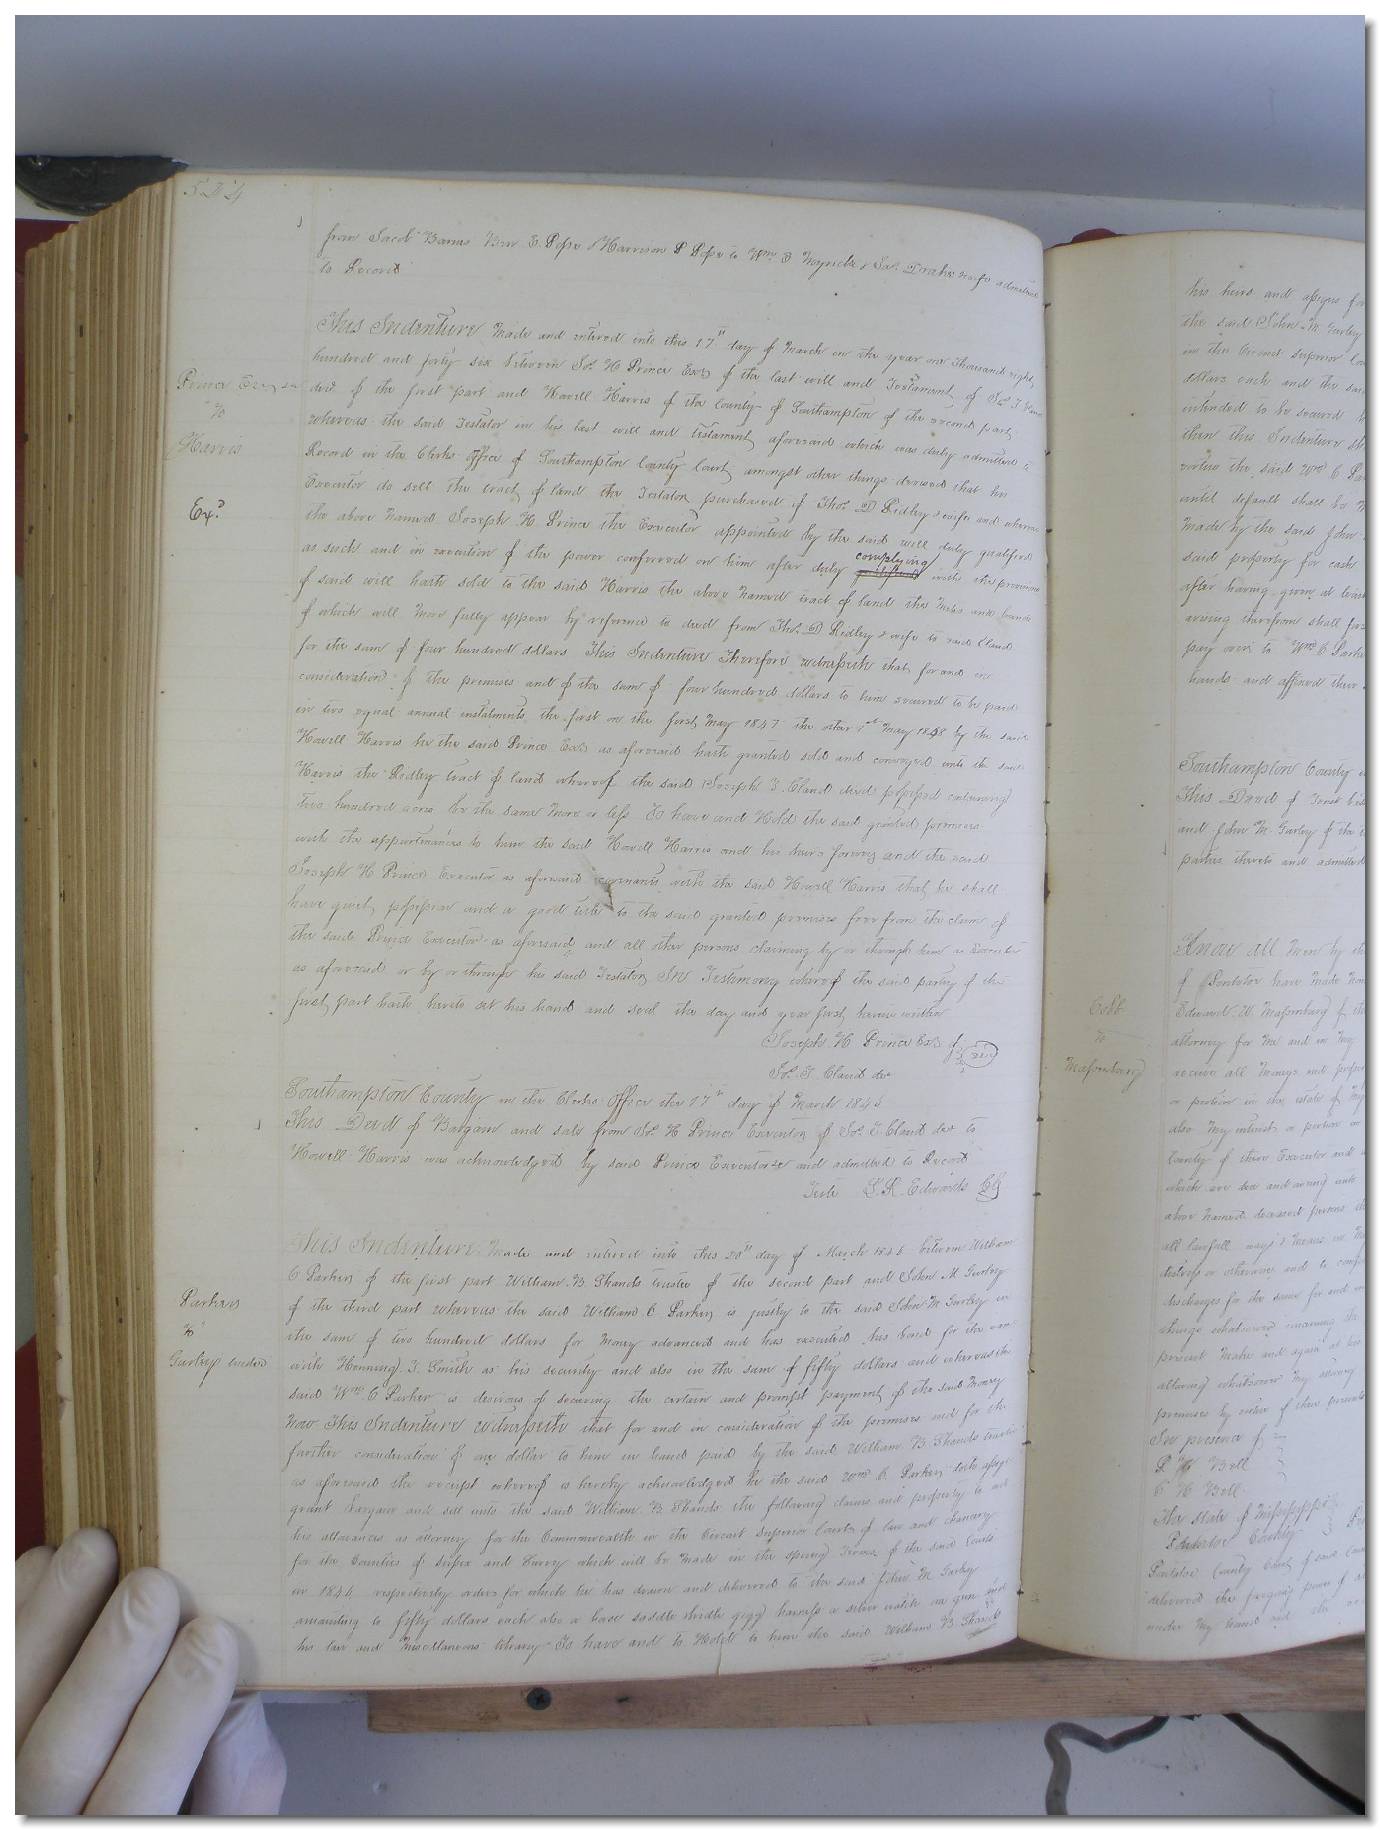 524
from Jacob Barnes Benj. E. Pope & Harrison P Pope to Wm B Myrick & Jas. Drake was admitted
to Record
This Indenture Made and entered into this 17th day of March in the year one thousand eight
hundred and forty six between Jos. H Prince Exor of the last will and Testament of Jos. T Claud
decd of the first part and Howell Harris of the County of Southampton of the second part
Prince Exor
to
Harris
Exd
whereas the said Testator in his last will and testament aforesaid which was duly admitted to
Record in the Clerks office of Southampton County Court amongst other things devised that his
Executor do sell the tract of land the Testator purchased of Thos. D Ridley & wife and whereas
the above Named Joseph H Prince the Executor appointed by the said will duly qualified
as such and in execution of the power conferred on him after duly complying with the provisions
of said will hath sold to the said Harris the above Named tract of land the Metes and bounds
of which will More fully appear by reference to deed from Thos. D Ridley & wife to said Claud
for the sum of four hundred dollars This Indenture Therefore witnesseth that for and in
consideration of the premises and of the sum of four hundred dollars to him secured to be paid
in two equal annual instalments the first on the first May 1847 the other 1st May 1848 by the said
Howell Harris he the said Prince Exor as aforesaid hath granted sold and conveyed unto the said
Harris the Ridley tract of land whereof the said Joseph T. Claud died possessed containing
Two hundred acres be the same More or less To have and Hold the said granted premises
with the appurtenances to him the said Howell Harris and his heirs forever and the said
Joseph H Prince Executor as aforesaid covenants with the said Howell Harris that he shall
have quiet possession and a good title to the said granted premises free from the claim of
the said Prince Executor as aforesaid and all other persons claiming by or through him as Executor
as aforesaid or by or through his said Testator In Testimony whereof the said party of the
first part hath hereto set his hand and seal the day and year first herein written
Joseph H Prince Exor of
Jos. T. Claud dec
Southampton County in the Clerks Office the 17th day of March 1846
This Deed of Bargain and sale from Jos. H Prince Executor of Jos. T. Claud dec to
Howell Harris was acknowledged by said Prince Executor and admitted to Record
Teste L. R. Edwards CC
This Indenture Made and entered into this 20th day of March 1846 between William
C Parker of the first part William B. Shands trustee of the second part and John M Gurley
Parker
to
Gurley
of the third part whereas the said William C Parker is justly to the said John M Gurley in
the sum of two hundred dollars for Money advanced and has executed his bond for the same
with Henning T. Smith as his security and also in the sum of fifty dollars and whereas the
said Wm C Parker is desirous of securing the certain and prompt payment of the said Money
Now This Indenture witnesseth that for and in consideration of the premises and for the
further consideration of one dollar to him in hand paid by the said William B. Shands trustee
as aforesaid the receipt whereof is hereby acknowledged he the said Wm C Parker doth assign
grant bargain and sell unto the said William B Shands the following claims and property to wit
his allowances as attorney for the Commonwealth in the Circuit Superior Courts of law and chancery
for the Counties of Sussex and Surry which will be Made in the spring Terms of the said Courts
in 1846 respectively orders for which he has drawn and delivered to the said John M Gurley
amounting to fifty dollars each also a horse saddle bridle gigg harness a silver watch on gun and
his law and Miscellaneous library To have and to Hold to him the said William B. Shands
his heirs and assigns
the said John M. Gurley
in the Circuit Superior
dollars each and the said
intended to be secured
then this Indenture
virtue the said Wm C
until default shall be
Made by the said John
said property for cash
after having given at least
arising therefrom shall
pay over to Wm C Parker
hands and afford
Southampton County
This Deed of Trust
and John M. Gurley of the
parties thereto and admitted
Cobb
to
Massenburg
Know all Men by
of Pontotoc have Made
Edward W. Massenburg of the
attorney for Me and in My
receive all Moneys and
or portion in the estate of
also My interest or portion
County of
which are due and owing
above named deceased persons
all lawful ways & Means in
distress or otherwise and to
discharges for the same for and
things whatsoever
present Make and again at
attorney whatsoever
premises by virtue of these presents
In presence of
P H Bell
C H Bell
The State of Mississippi
Pontotoc County
Pontotoc County Court of said
delivered the foregoing power of
under My hand and